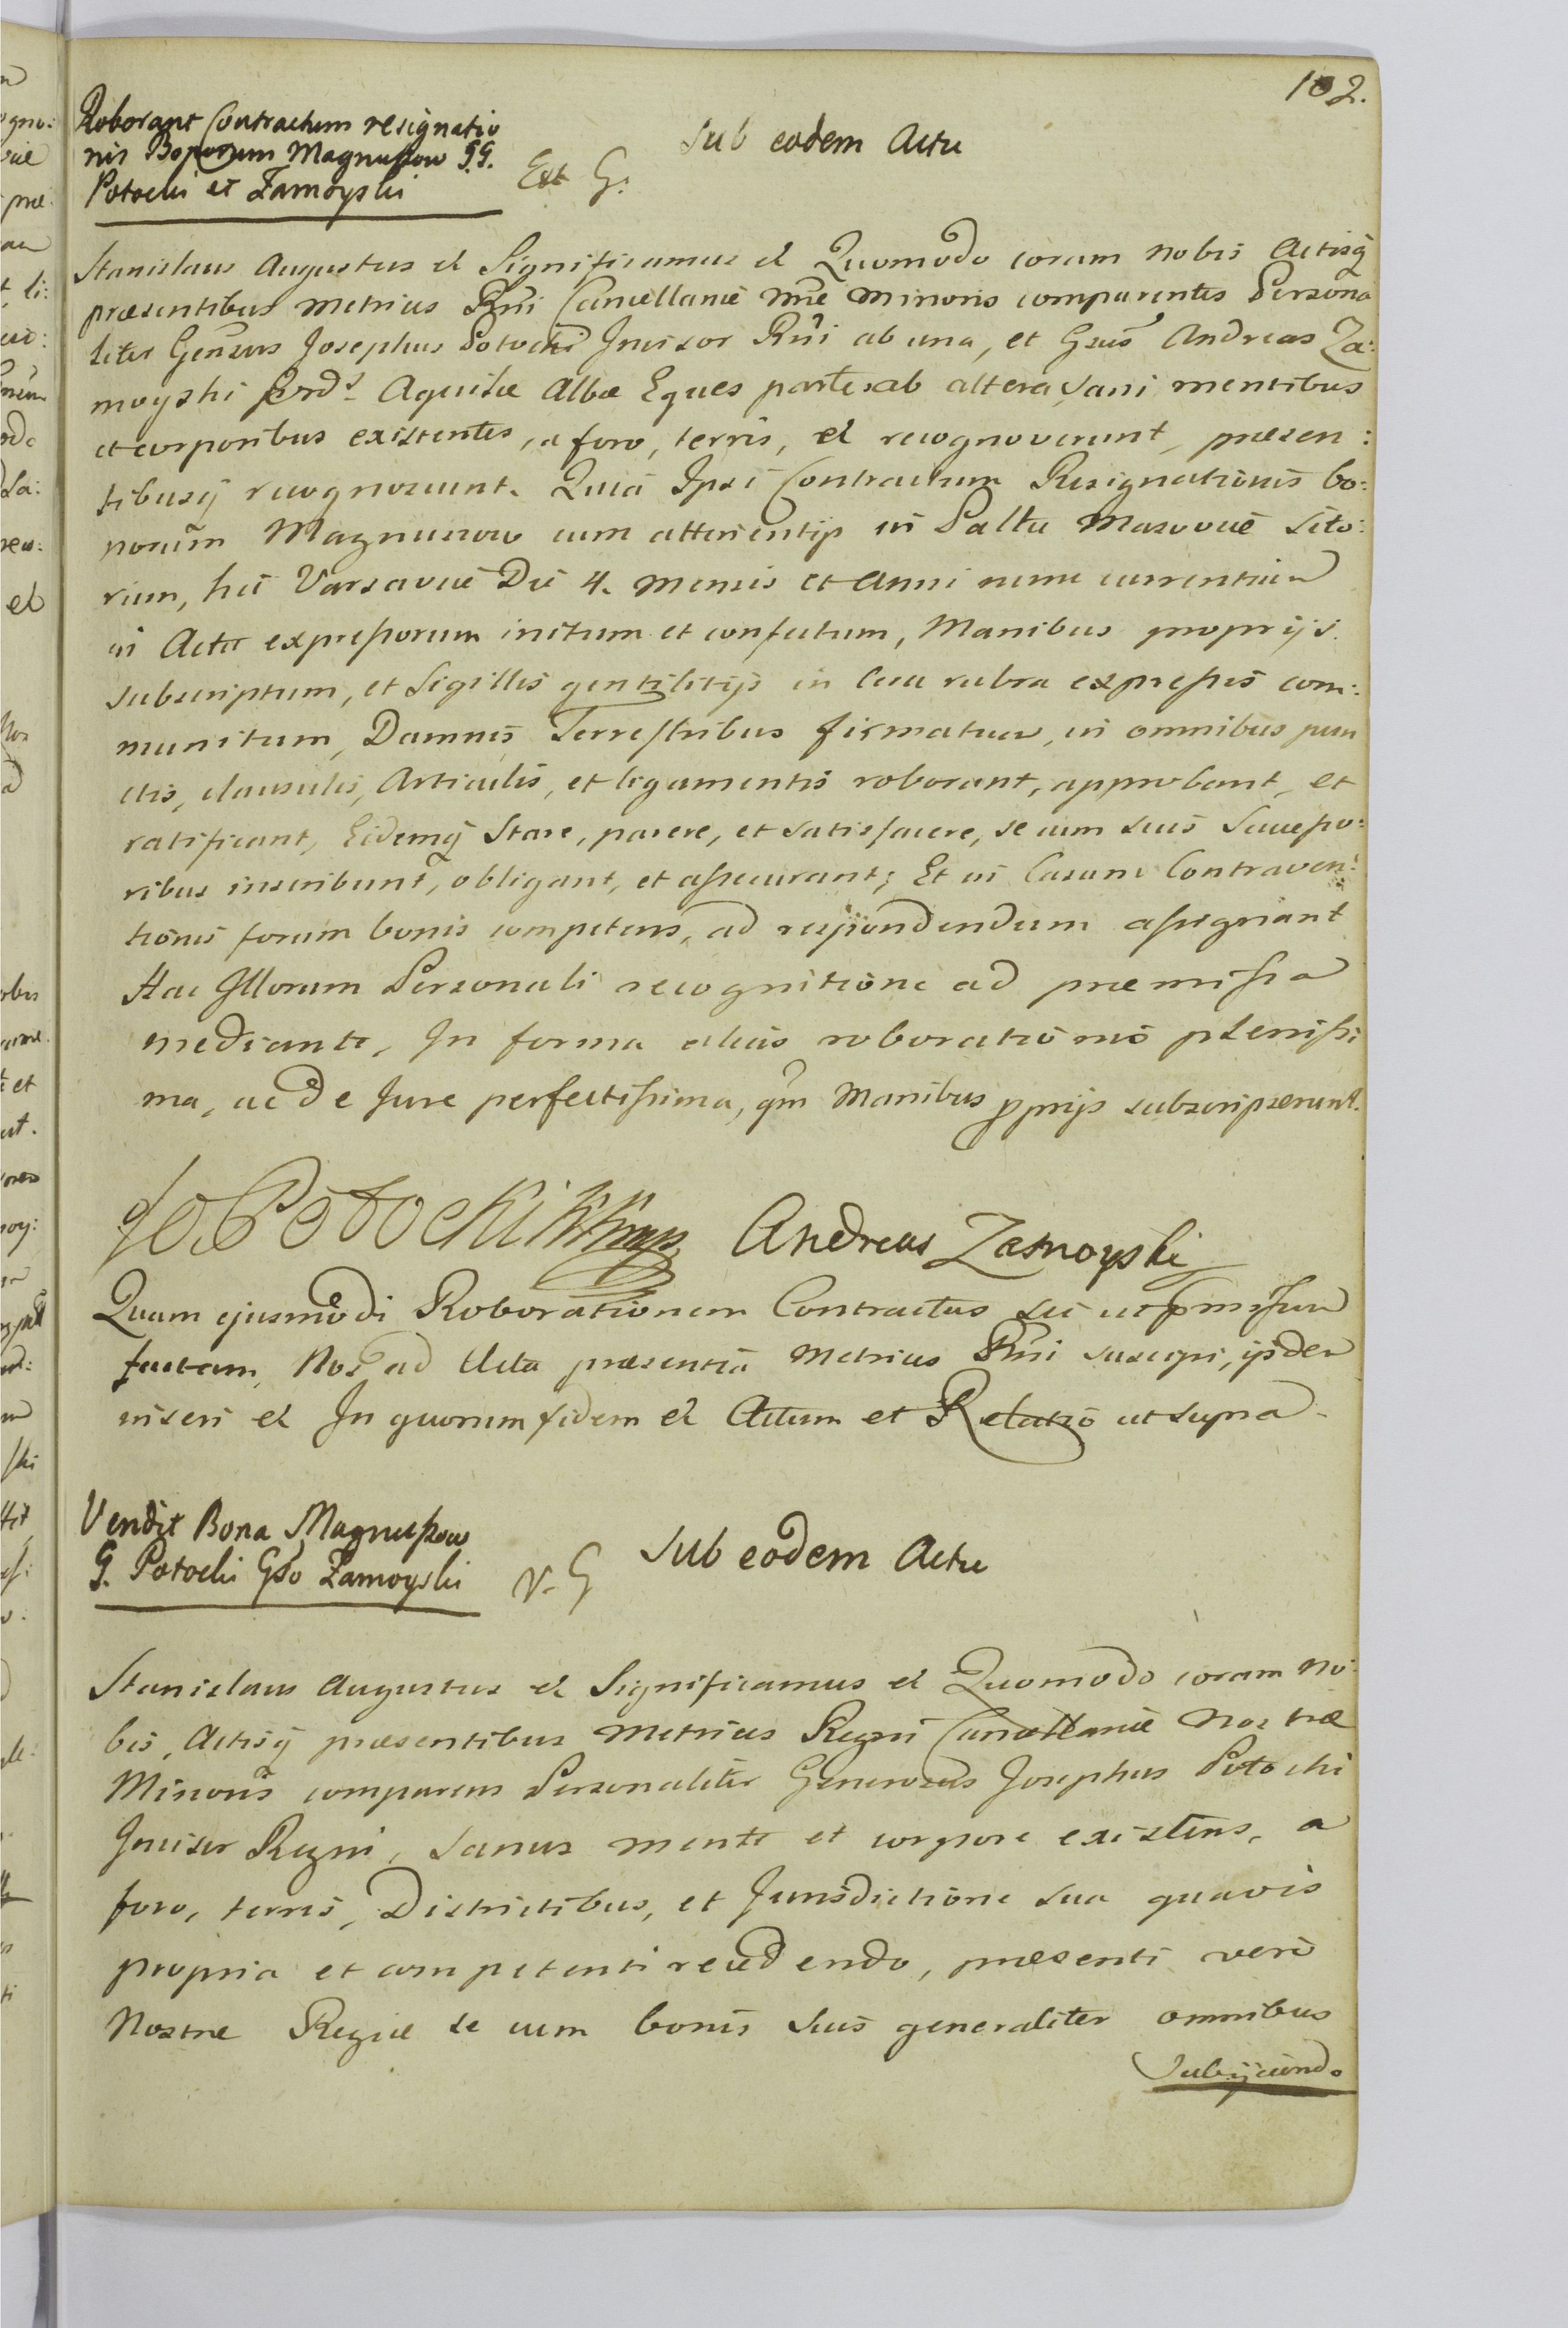 102.
Roborant Contractum resignatio
nis Bonorum Magnuszow G.G.
Potocki et Zamoyski
Ext G.
Sub eodem Actu
Stanislaus Augustus et Significamus et Quomodo coram Nobis Actisq̃
præsentibus Metrices Rñi Cancellariæ Nræ Minoris comparentes Persona
liter Geñsus Josephus Potocki Incisor Rñi ab una, et Gsus Andreas Za:
moyski Ord: Aquilæ Albæ Eques partes ab altera, sani mentibus
et corporibus existentes, a foro, terris, et recognoverunt, præsen:
tibusq̃ recognoscunt. Quia Ipsi Contractum Resignationis bo:
norum Magnuszow cum attinentijs in Palttu Masoviæ sito:
rum, hic Varsaviæ Die 4. Mensis et Anni nunc currentium
in Actu expressorum initum et confectum, Manibus proprijs
subscriptum, et Sigillis gentilitijs in Cera rubra expressis com:
munitum, Damnis Terrestribus firmatum, in omnibus pun
ctis, clausulis, Articulis, et ligamentis roborant, approbant, et
ratificant, Eidemq̃ Stare, parere, et satisfacere, se cum suis Successo:
ribus inscribunt, obligant, et assecurant; Et in Casum Contraven:
tionis forum bonis competens, ad respondendum assignant
Hac Illorum Personali recognitione ad præmissa
mediante, In forma alias roborationis plenissi
ma, ac de Jure perfectissima, qm̃ Manibus pprijs subscripserunt.
Jo. Potocki KKmp. Andreas Zamoyski
Quam ejusmodi Roborationem Contractus sic ut pmissum
factam, Nos ad Acta præsentia Metrices Rñi suscepi, ijsdem
inseri et In quorum fidem et Actum et Relatio ut supra.
Vendit Bona Magnuszow
G. Potocki Gso Zamoyski
V. G
Sub eodem Actu
Stanislaus Augustus et Significamus et Quomodo coram No:
bis, Actisq̃ præsentibus Metrices Regni Cancellariæ Nostræ
Minoris comparens Personaliter Generosus Josephus Potocki
Incisor Regni, sanus mente et corpore existens, a
foro, terris, Districtibus, et Jurisdictione sua quavis
propria et competenti recedendo, præsenti vero
Nostræ Regiæ se cum bonis suis generaliter omnibus
Subijciendo